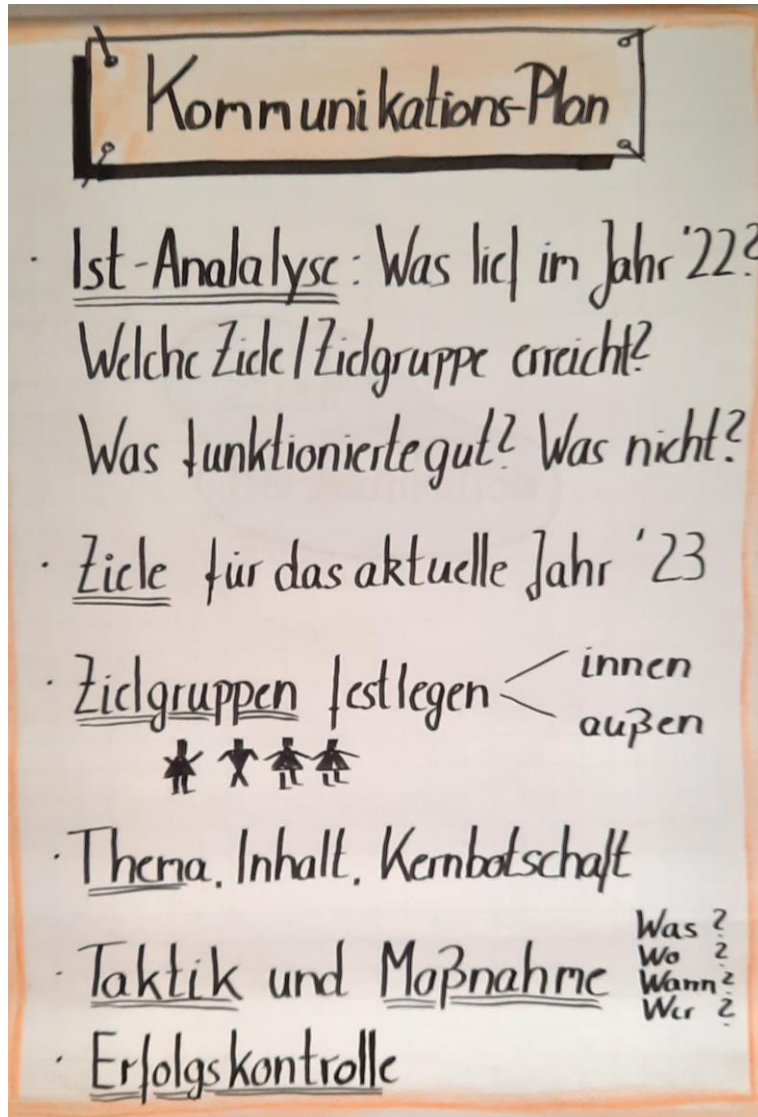 Kommunikations-Plan
· Ist-Analalyse: Was lief im Jahr '22?
Welche Ziele/Zielgruppe erreicht?
Was funktionierte gut? Was nicht?
· Ziele für das aktuelle Jahr '23
· Zielgruppen festlegen
innen
außen
· Thema, Inhalt, Kernbotschaft
· Taktik und Maßnahme
Was?
Wo?
Wann?
Wer?
· Erfolgskontrolle